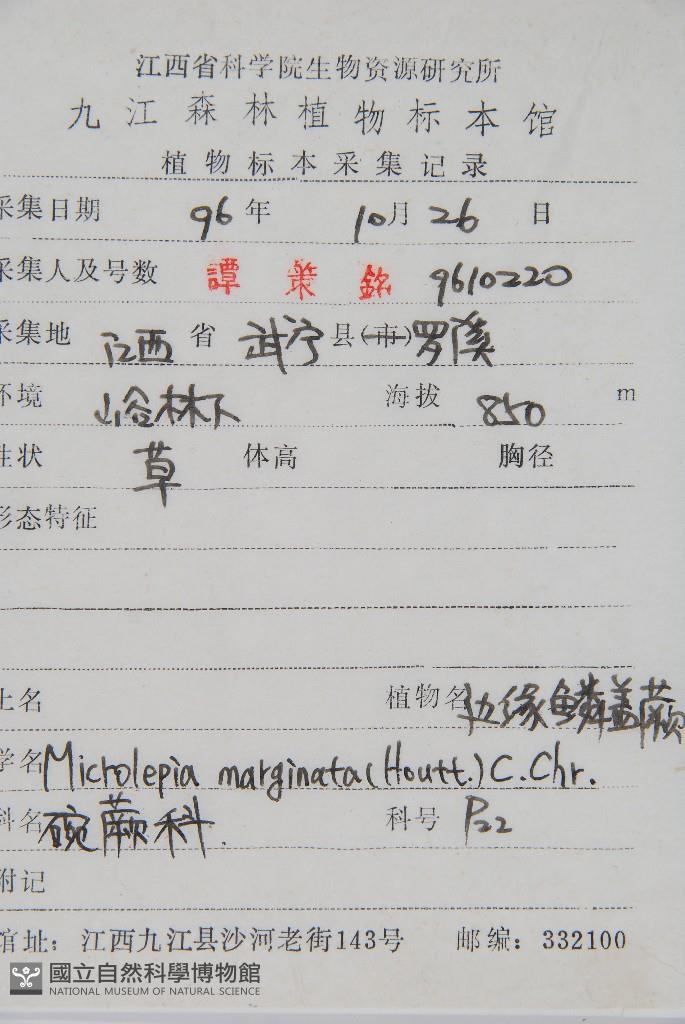 江西省科学院生物资源研究所
九江森林植物标本馆
植物标本采集记录
采集日期 96 年 10 月 26 日
采集人及号数 譚策銘 9610220
采集地 江西 省 武宁 县(市) 罗溪
环境 山谷林下 海拔 850 m
性状 草 体高 胸径
形态特征
土名 植物名 边缘鳞盖蕨
学名 Microlepia marginata (Houtt.) C. Chr.
科名 碗蕨科. 科号 P22
附记
馆址：江西九江县沙河老街143号 邮编：332100
國立自然科學博物館
NATIONAL MUSEUM OF NATURAL SCIENCE